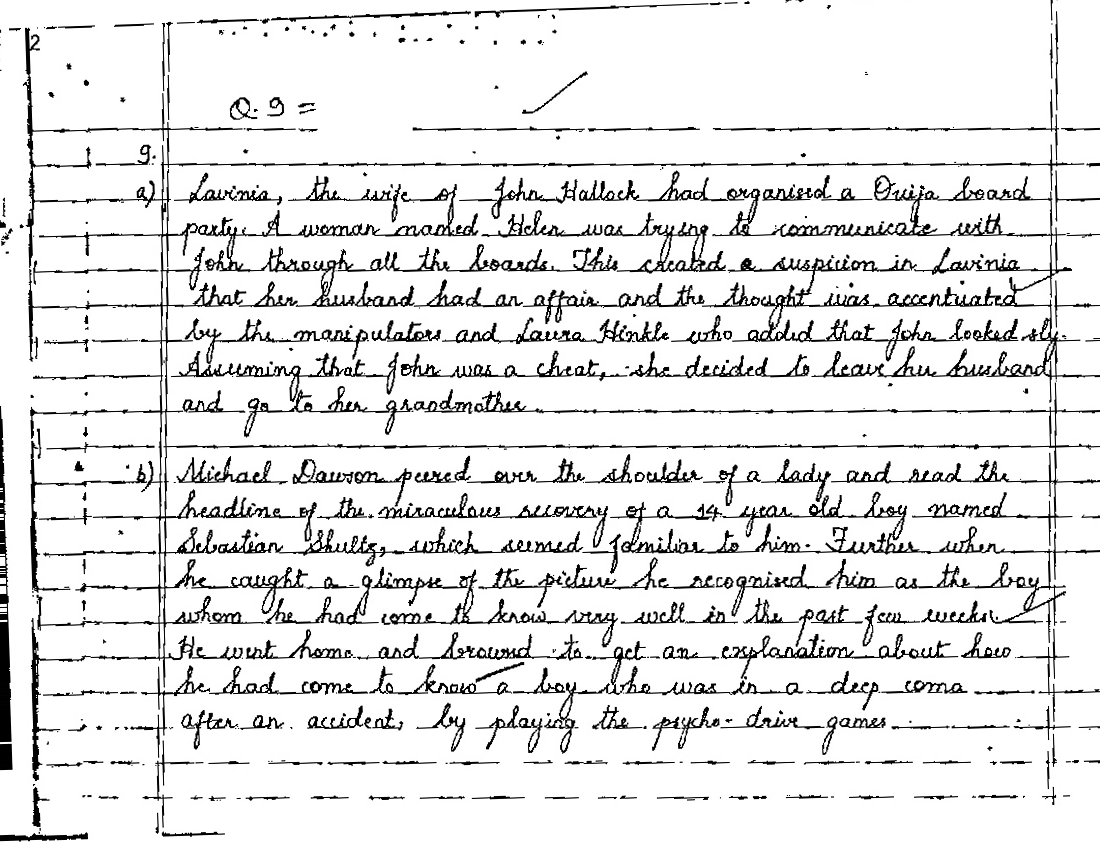 2
Q.9 =
9.
a) Lavinia, the wife of John Hallock had organised a Ouija board
party. A woman named Helen was trying to communicate with
John through all the boards. This created a suspicion in Lavinia
that her husband had an affair and the thought was accentuated
by the manipulators and Laura Hinkle who added that John looked sly.
Assuming that John was a cheat, she decided to leave her husband
and go to her grandmother.
b) Michael Dawson peered over the shoulder of a lady and read the
headline of the miraculous recovery of a 14 year old boy named
Sebastian Shultz, which seemed familiar to him. Further when
he caught a glimpse of the picture he recognised him as the boy
whom he had come to know very well in the past few weeks.
He went home and browsed to get an explanation about how
he had come to know a boy who was in a deep coma
after an accident, by playing the psycho-drive games.